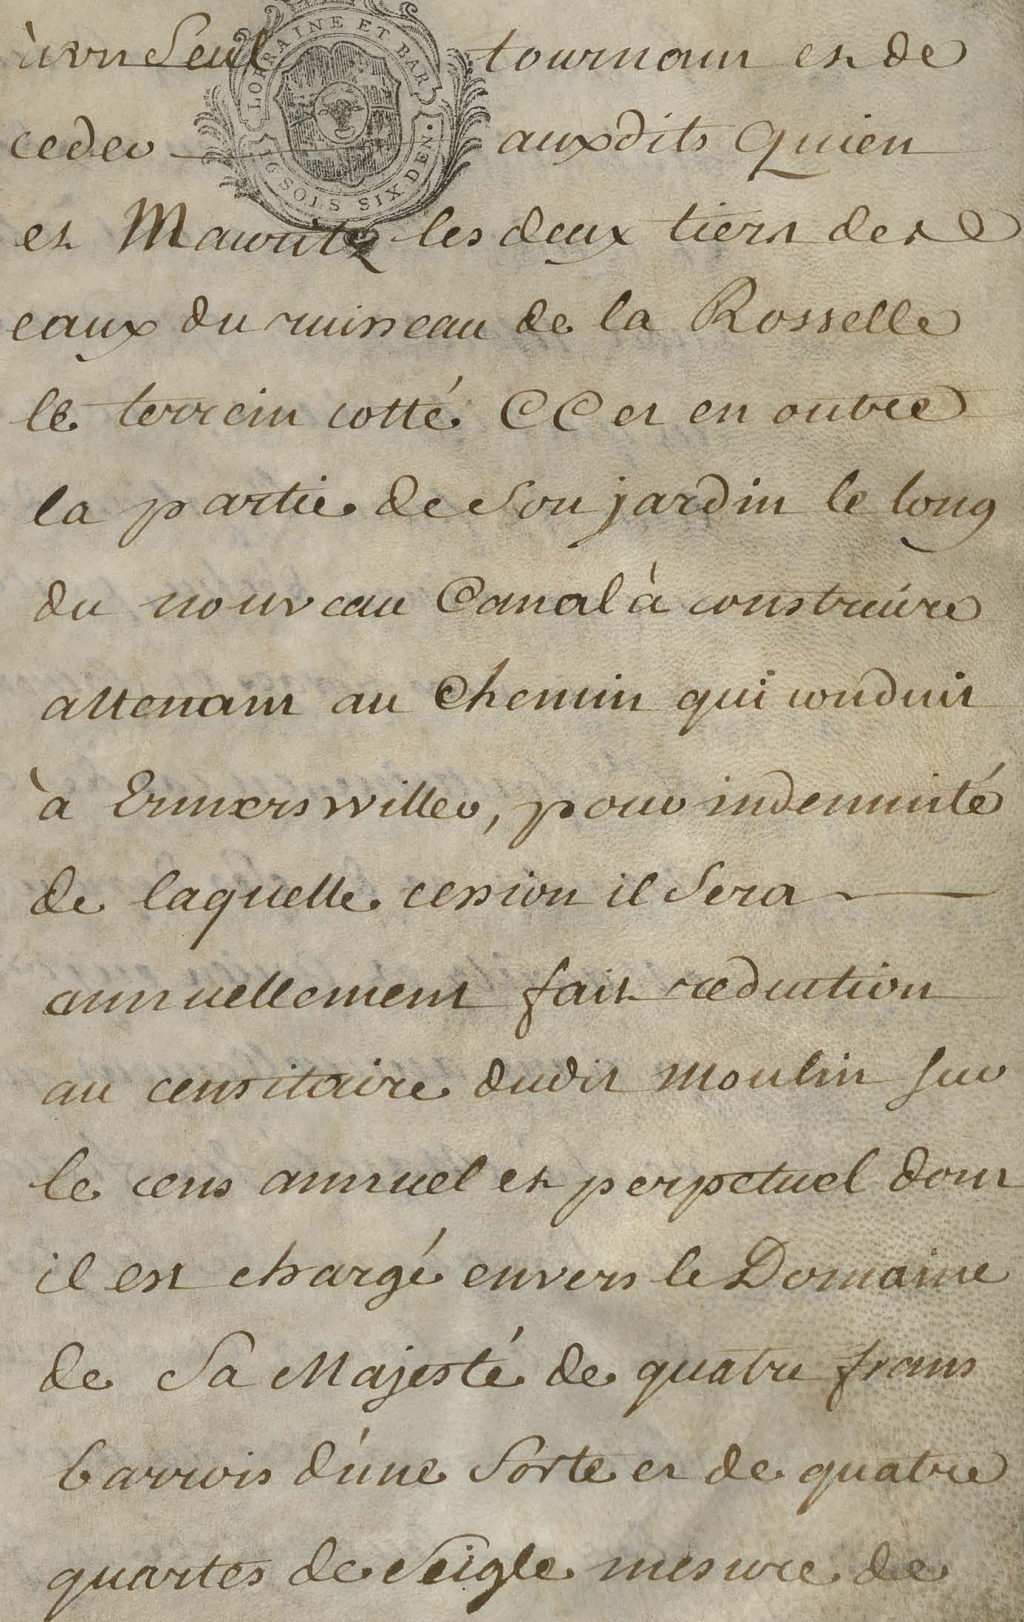 à un Seul tournant et de
LORRAINE ET BAR
ceder auxdits Quien
16 SOLS SIX DEN.
et Mauritz les deux tiers des
eaux du ruisseau de la Rosselle
le terrein cotté CC et en outre
la partie de Son jardin le long
du nouveau Canal à construire
attenant au Chemin qui conduit
à Ermerswiller, pour indemnité
de laquelle cession il Sera
annuellement fait reduction
au censitaire dudit Moulin sur
le cens annuel et perpetuel dont
il est chargé envers le Domaine
de Sa Majesté de quatre frans
barrois d'une Sorte et de quatre
quartes de Seigle mesure de